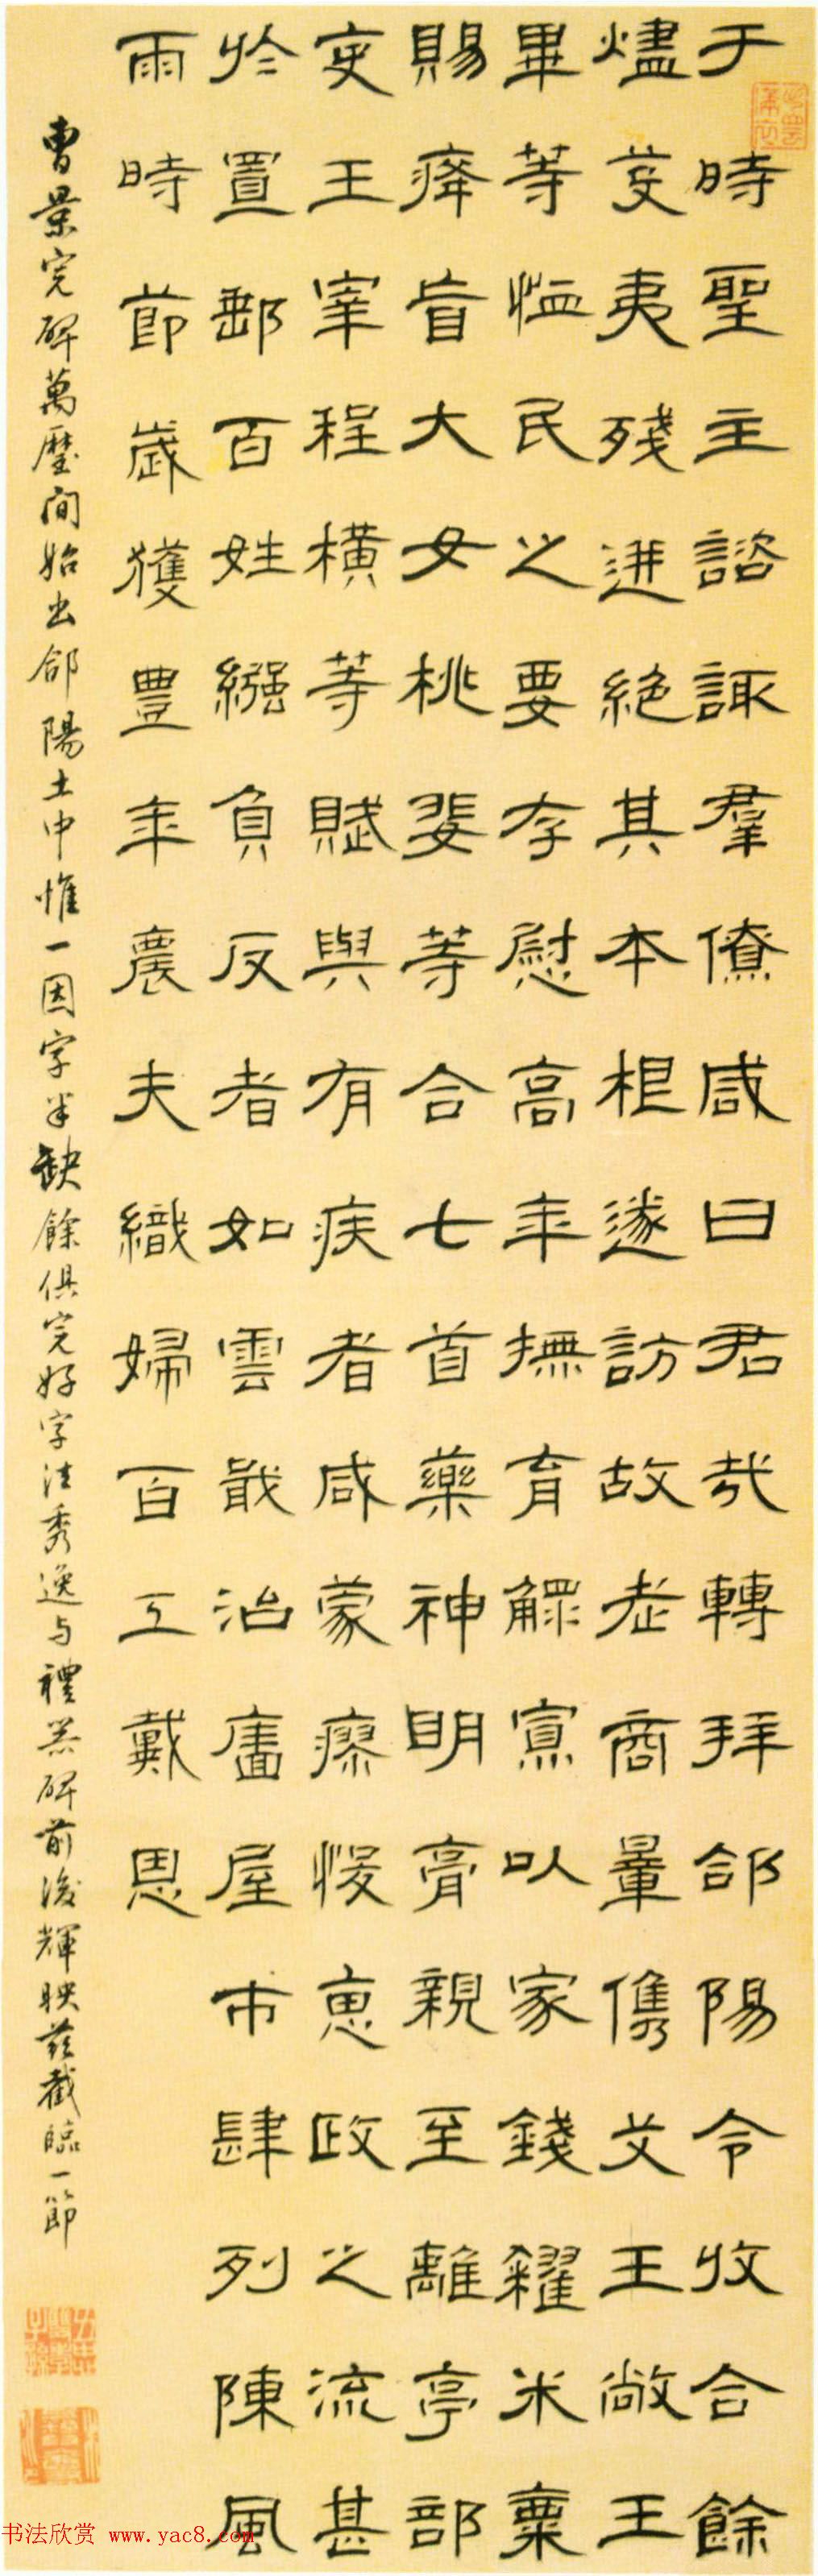 于時聖主諮諏羣僚咸曰君哉轉拜郃陽令收合餘
燼芟夷殘迸絶其本根遂訪故老商量儁艾王敞王
畢等恤民之要存慰高年撫育鰥寡以家錢糴米粟
賜癃盲大女桃斐等合七首藥神明膏親至離亭部
吏王宰程橫等賦與有疾者咸蒙瘳悛惠政之流甚
於置郵百姓繈負反者如雲戢治廧屋市肆列陳風
雨時節歲獲豐年農夫織婦百工戴恩
曹景完碑萬歷间始出郃陽土中惟一因字半缺餘俱完好字法秀逸与禮器碑前後輝映茲截臨一節
书法欣赏 www.yac8.com